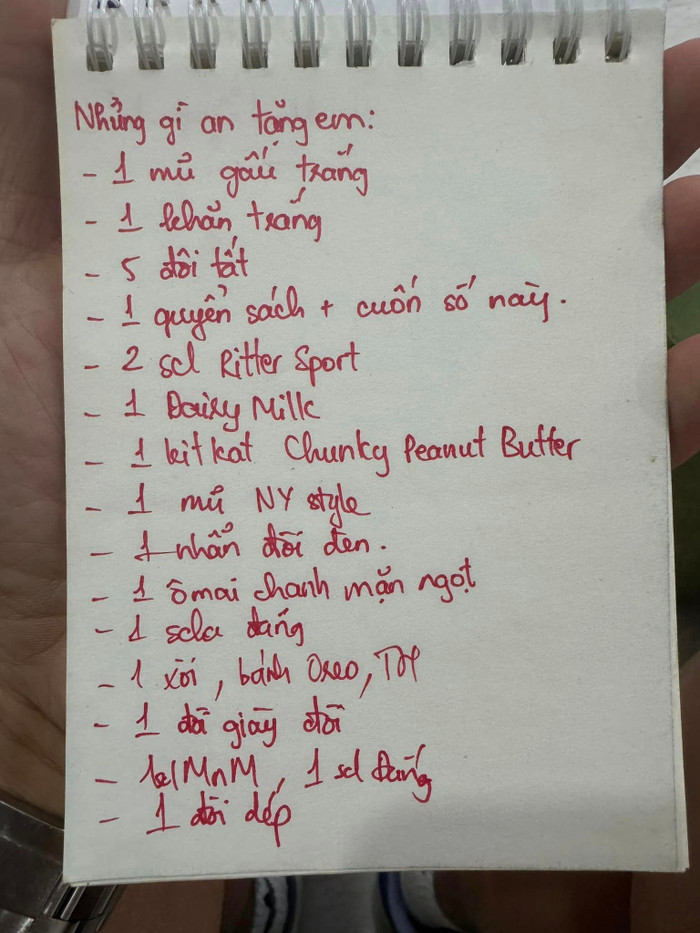 Những gì an tặng em:
- 1 mũ gấu trắng
- 1 khăn trắng
- 5 đôi tất
- 1 quyển sách + cuốn sổ này.
- 2 scl Ritter Sport
- 1 Dairy Milk
- 1 kitkat Chunky Peanut Butter
- 1 mũ NY style
- 1 nhẫn đôi đen.
- 1 ômai chanh mặn ngọt
- 1 scla đắng
- 1 xôi, bánh Oreo,
- 1 đôi giày đôi
- MnM, 1 scl Đắng
- 1 đôi dép